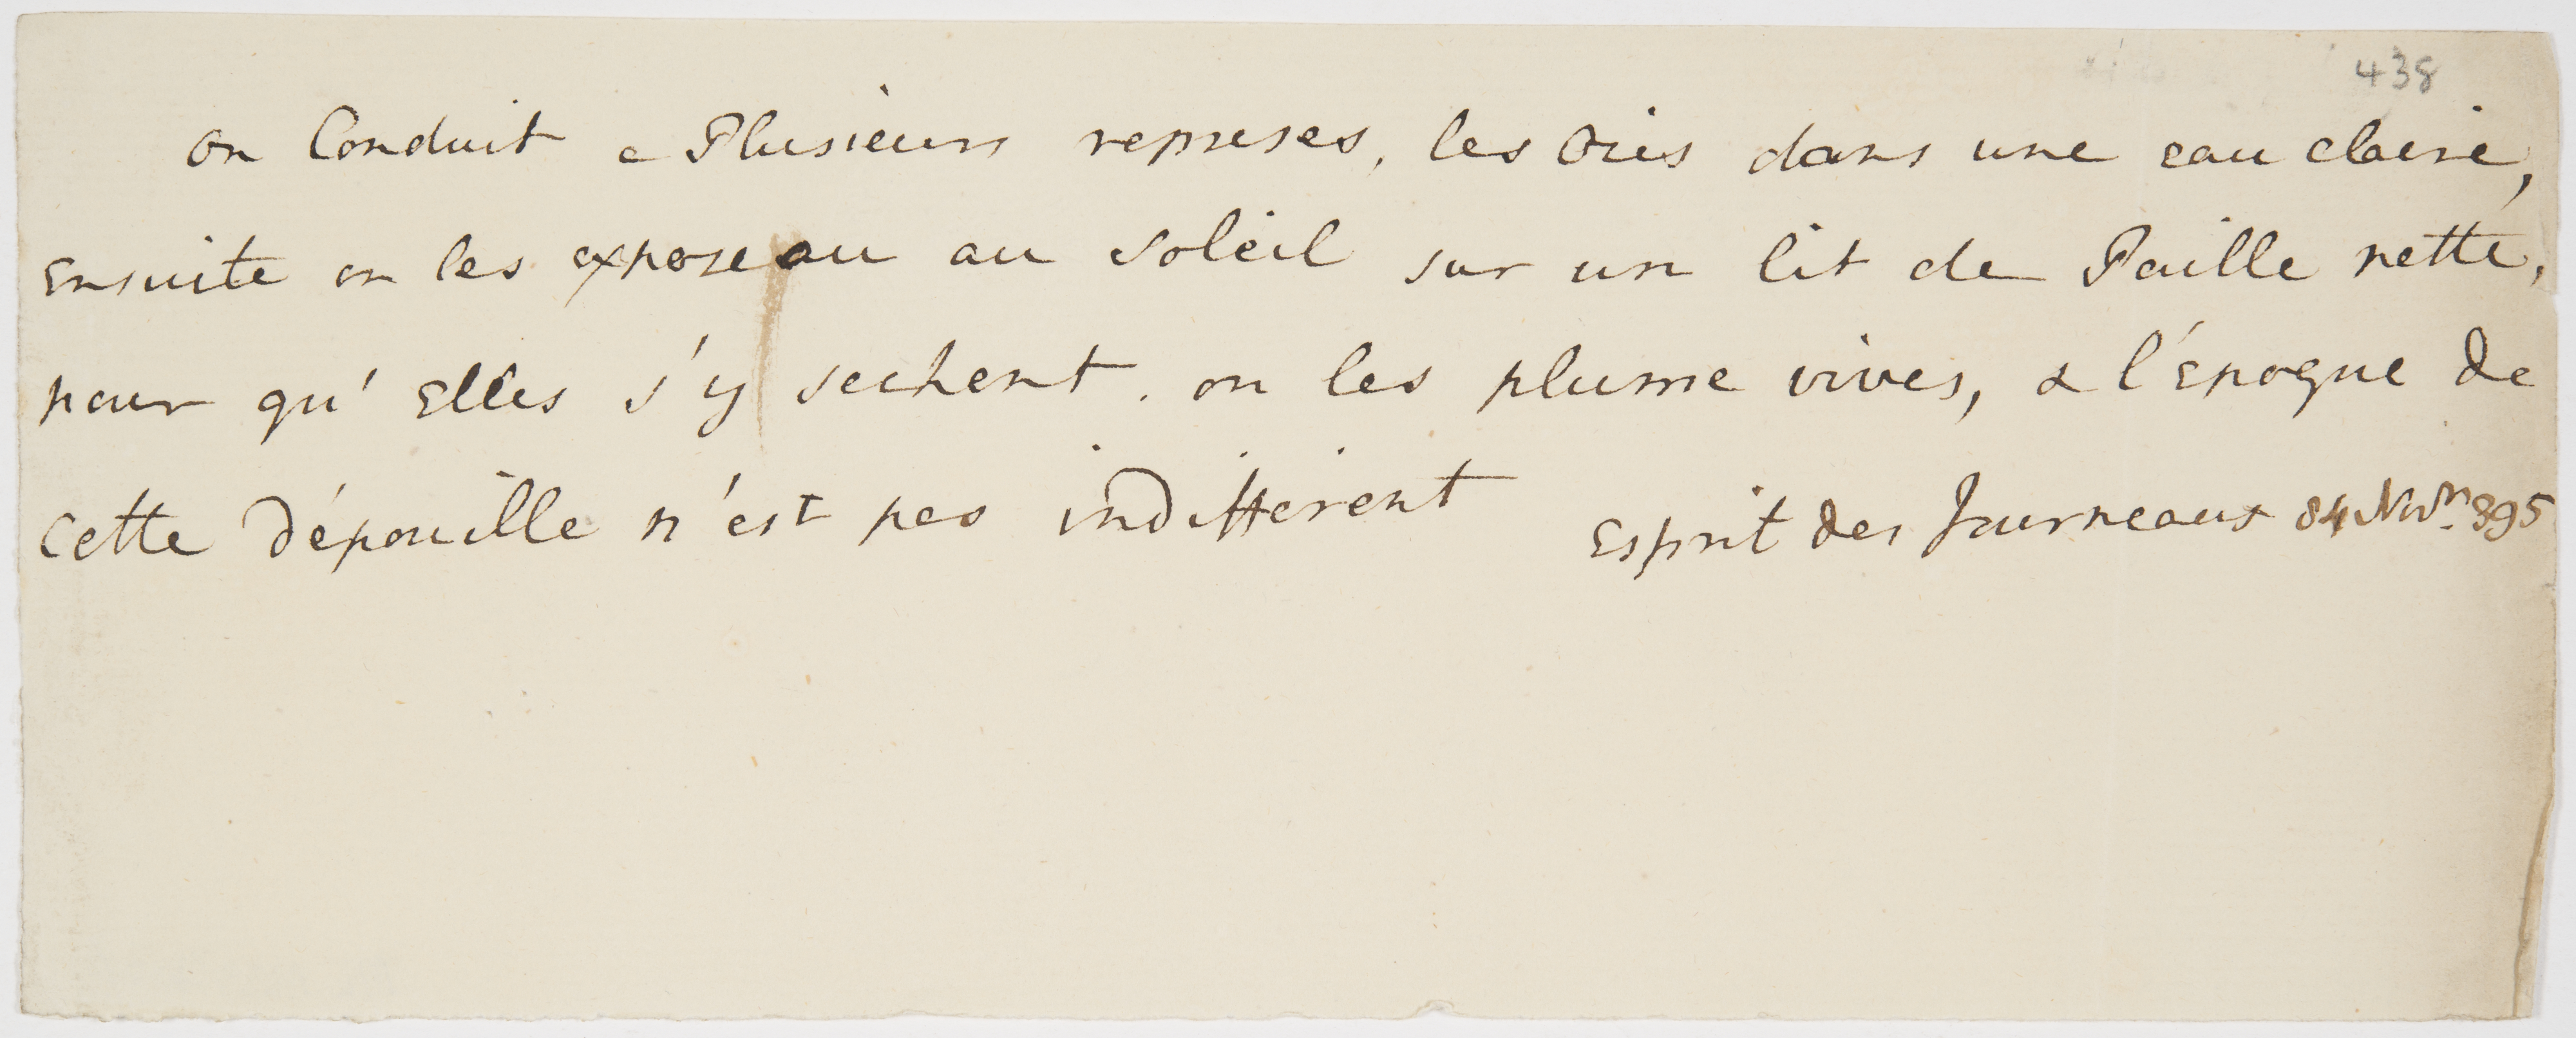 438
on Conduit a Plusieurs reprises, les Oies dans une eau claire,
ensuite on les expose au au soleil sur un lit de Paille nette,
pour qu'elles s'y sechent. on les plume vives, & l'epoque de
cette dépouille n'est pas indifferent
Esprit des Journeaux 84 Nov.<sup>re</sup> 395